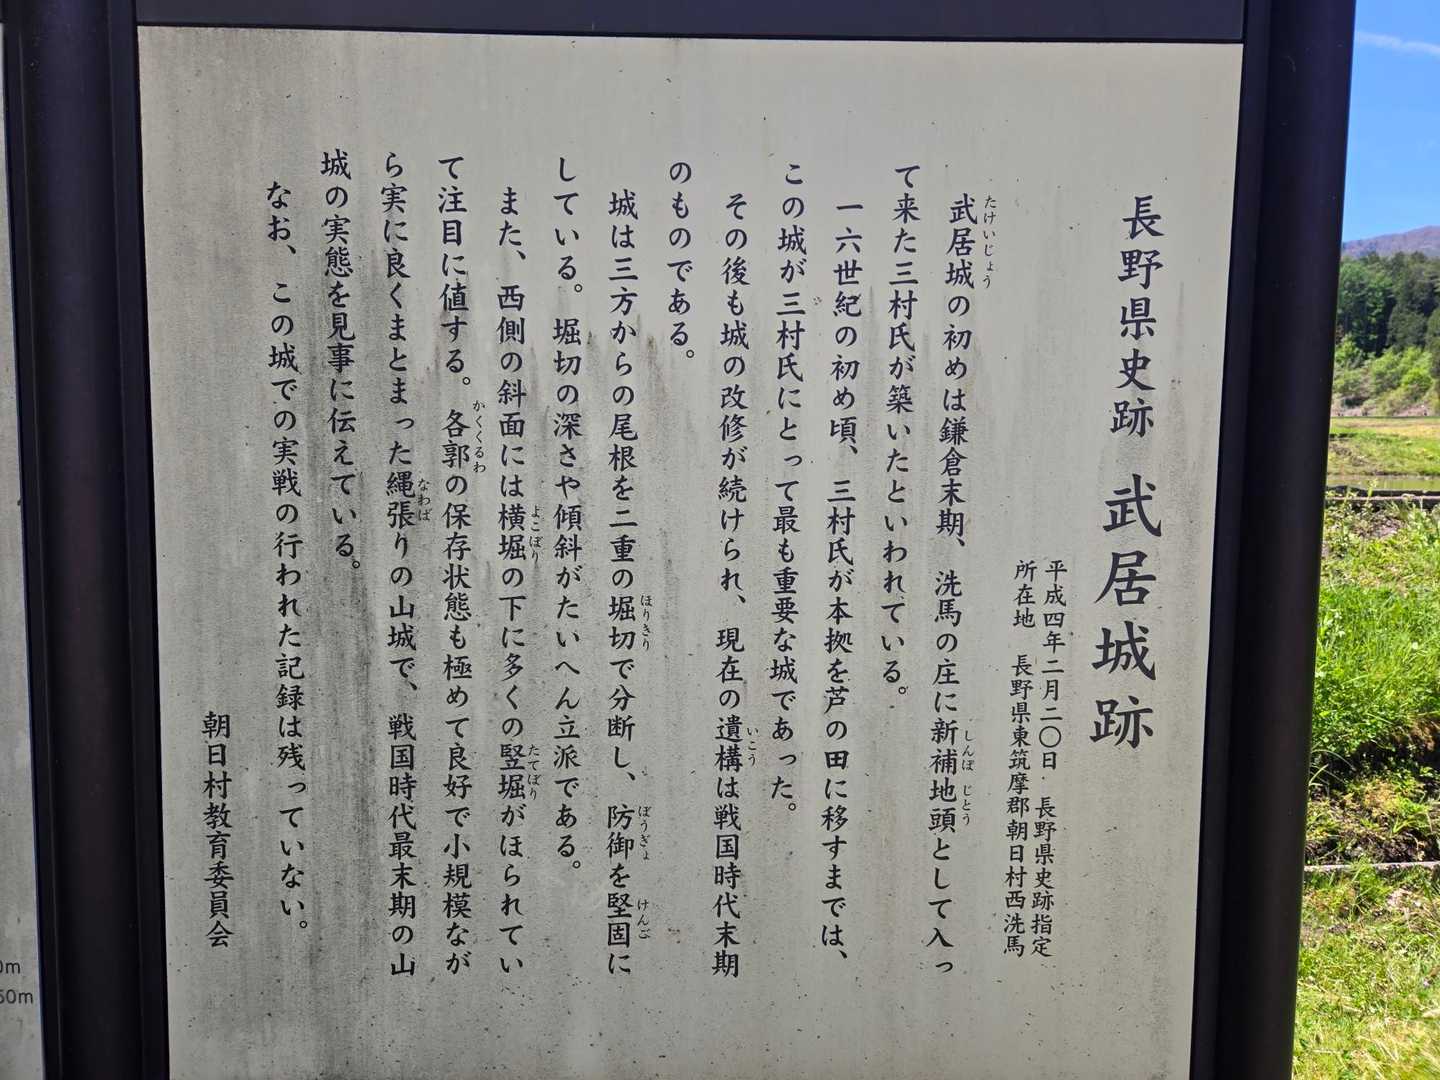 長野県史跡 武居城跡
平成四年二月二〇日 長野県史跡指定
所在地 長野県東筑摩郡朝日村西洗馬
たけいじょう
武居城の初めは鎌倉末期、洗馬の庄に新補地頭として入っ
しんぽ じとう
て来た三村氏が築いたといわれている。
一六世紀の初め頃、三村氏が本拠を芦の田に移すまでは、
この城が三村氏にとって最も重要な城であった。
その後も城の改修が続けられ、現在の遺構は戦国時代末期
いこう
のものである。
城は三方からの尾根を二重の堀切で分断し、防御を堅固に
ほりきり ぼうぎょ けんご
している。堀切の深さや傾斜がたいへん立派である。
また、西側の斜面には横堀の下に多くの竪堀がほられてい
よこぼり たてぼり
て注目に値する。各郭の保存状態も極めて良好で小規模なが
かくくるわ
ら実に良くまとまった縄張りの山城で、戦国時代最末期の山
なわば
城の実態を見事に伝えている。
なお、この城での実戦の行われた記録は残っていない。
朝日村教育委員会
0m
50m